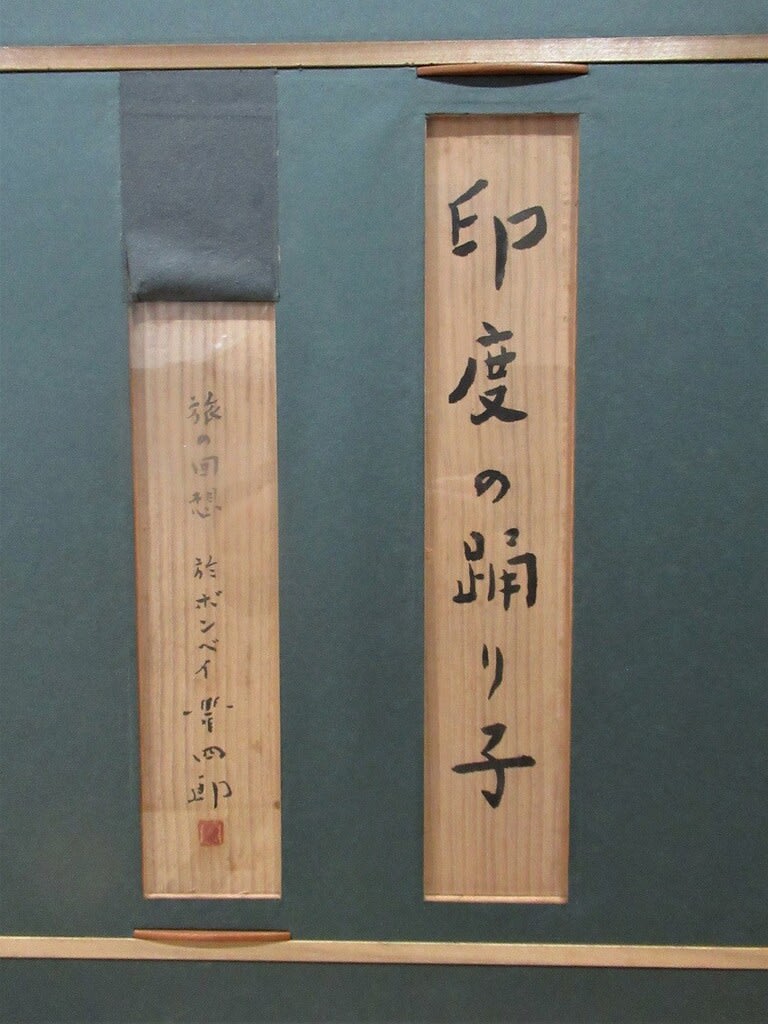 印度の踊り子
旅の回想 於ボンベイ 四郎